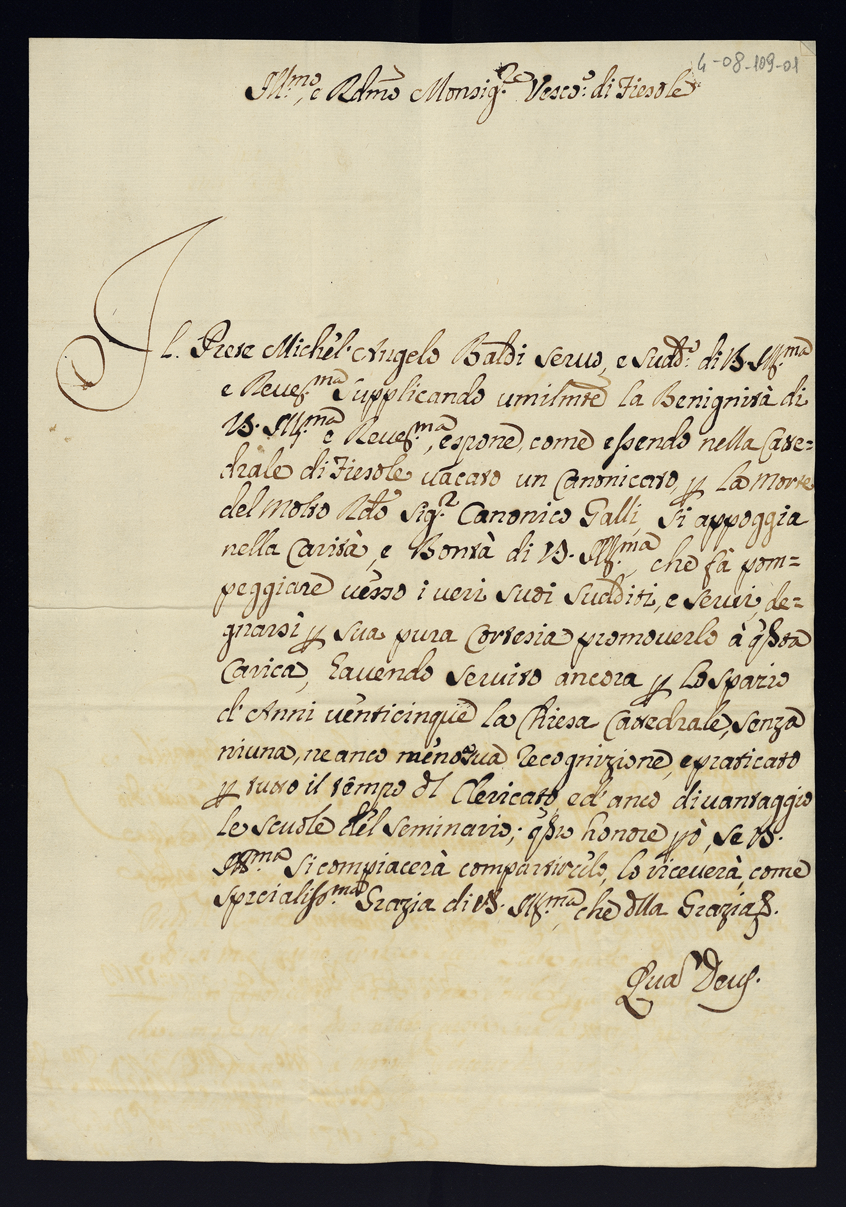 4-08-109-01
Ill:mo, e Rdmo Monsig:re Vesco: di Fiesole
Il. Prete Michel' Angelo Baldi servo, e sudd:o di V. Ill:ma
e Reve:ma supplicando umilmte la Benignità di
V. Ill:ma e Reve:ma, espone, come essendo nella Cate=
drale di Fiesole vacato un Canonicato, p la Morte
del Molto Rdo Sig:r Canonico Galli, si appoggia
nella Carità, e Bontà di V. Ill:ma, che fà pom=
peggiare verso i veri suoi sudditi, e servi, de=
gnarsi p sua pura Cortesia promoverlo à qsta
Carica, havendo servito ancora p lo spazio
d'Anni venticinque la Chiesa Catedrale, senza
niuna, ne anco menoma recognizione, e praticato
p tutto il tempo dl Clericato, ed' anco di vantaggio
le scuole del seminario; qsto honore pò, se V.
Ill:ma si compiacerà compartirlo, lo riceverà, come
specialiss:ma Grazia di V. Ill:ma, che dlla Grazia &.
Qua Deus.